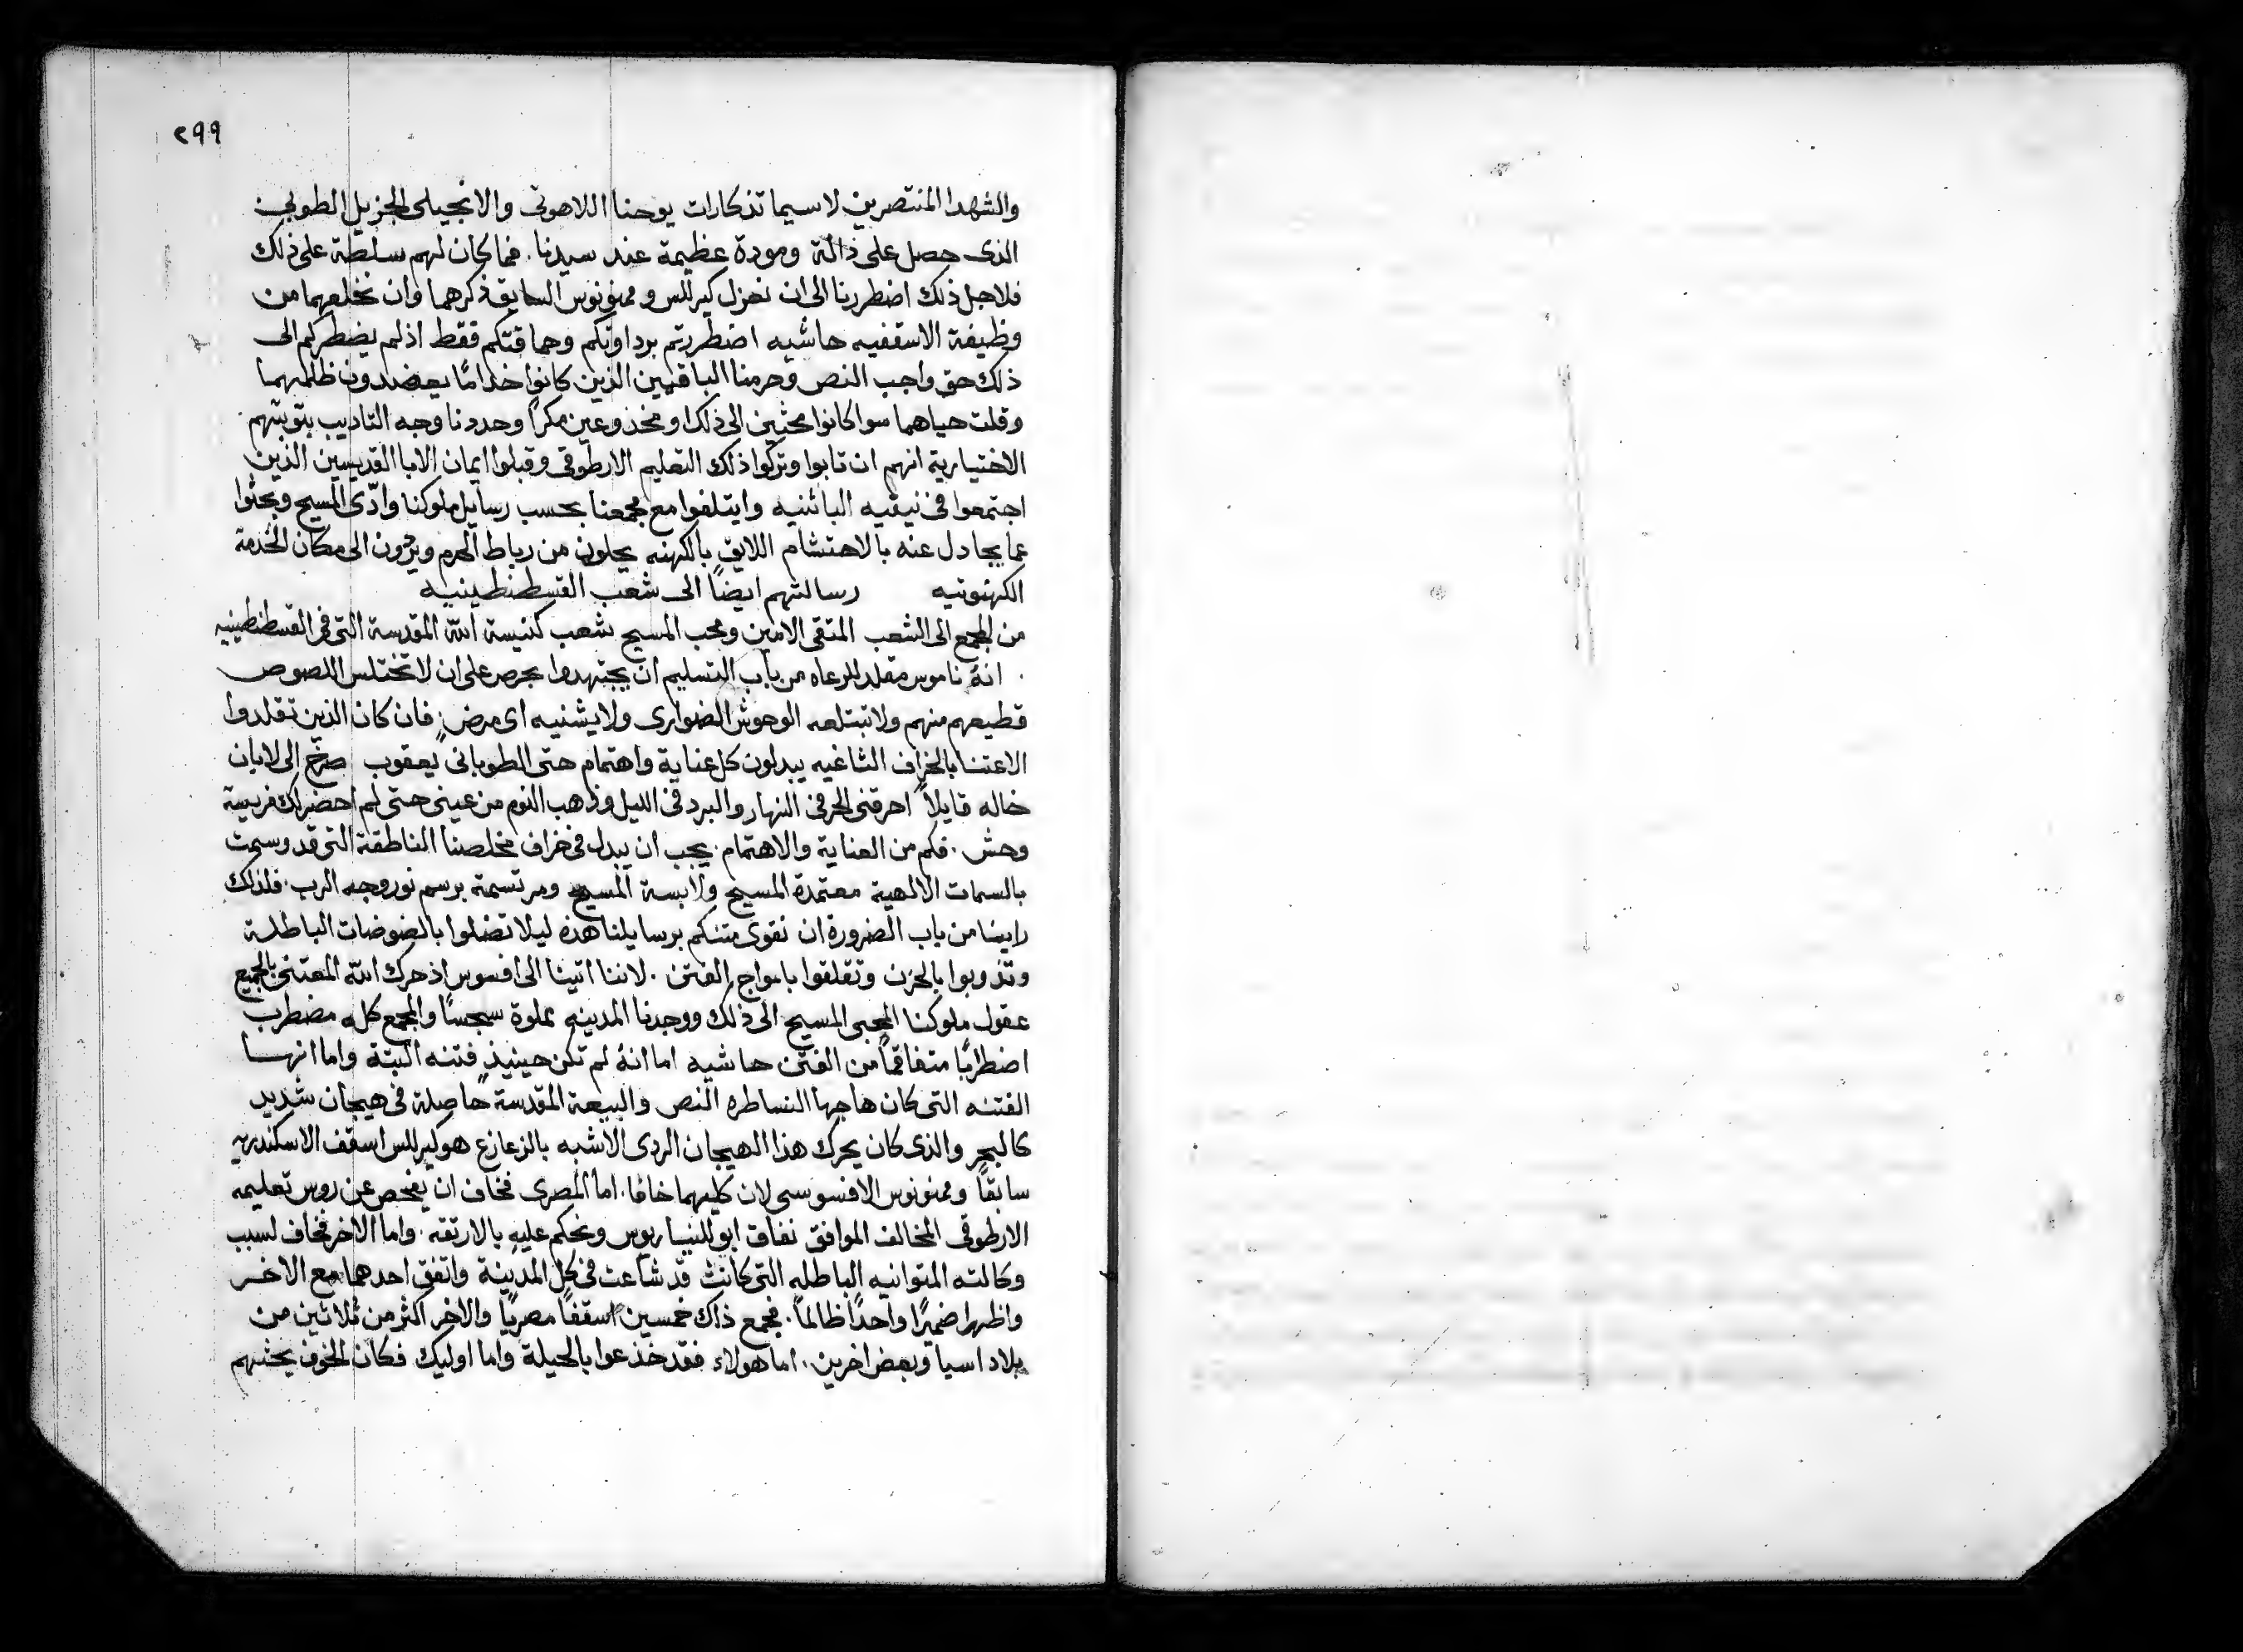 ٢٩٩
والشهدا المنتصرين لا سيما تذكارات يوحنا اللاهوتى والانجيلى الجزيل الطوبى
الذى حصل على دالة ومودة عظيمة عند سيدنا. فما كان لهم سلطة على ذلك
فلاجل ذلك اضطررنا الى ان نعزل كيرللس وممنونوس السابق ذكرهما وان نخلعهما من
وظيفة الاسقفيه حاشيه اضطررتم برداوتكم وحماقتكم فقط اذ لم يضطركم الى
ذلك حق واجب النص وحرمنا الباقيين الذين كانوا خدامًا يعضدون ظلمهما
وقلت حياهما سوا كانوا محثين الى ذلك او مخدوعين مكرًا وحددنا وجه التاديب بتوبتهم
الاختيارية انهم ان تابوا وتركوا ذلك التعليم الارطوقى وقبلوا ايمان الابا القديسين الذين
اجتمعوا فى نيقيه الباثنيه وايتلفوا مع مجمعنا بحسب رسايل ملوكنا وادّى المسيح وبحثوا
عما يجادل عنه بالاحتشام اللايق بالكهنه يحلون من رباط الحرم ويردون الى مكان الخدمة
الكهنوتيه رسالتهم ايضًا الى شعب القسطنطينيه
من المجمع الى الشعب المتقى الامين ومحب المسيح شعب كنيسة الله المقدسة التى فى القسطنطينيه
انهُ ناموس مقلد للرعاه من باب التسليم ان يجتهدوا بحرص على ان لا تختلس اللصوص
قطيعهم منهم ولا تبتلعه الوحوش الضوارى ولا يشنيه اى مرض. فان كان الذين تقلدوا
الاعتنا بالخراف الثاغيه يبدلون كل عناية واهتمام حتى الطوبانى يعقوب صرخ الى لابان
خاله قايلاً احرقنى الحر فى النهار والبرد فى الليل وذهب النوم من عينى حتى لم احضر لك فريسة
وحش. فكم من العناية والاهتمام يجب ان يبدل فى خراف مخلصنا الناطقة التى قد وسمت
بالسمات الالهية معتمدة المسيح ولابسة المسيح ومرتسمة برسم نور وجه الرب. فلذلك
راينا من باب الضرورة ان نقوى متنكم برسايلنا هذه ليلا تضلوا بالضوضات الباطلة
وتذوبوا بالحزن وتقلقوا بامواج الفتن. لاننا اتينا الى افسوس اذ حرك الله المعتنى بالجميع
عقول ملوكنا المحبى المسيح الى ذلك ووجدنا المدينه مملوة سجسًا والمجمع كله مضطرب
اضطرابًا متفاقمًا من الفتن حاشيه اما انهُ لم تكن حينيذٍ فتنه البتة واما انها
الفتنه التى كان هاجها النساطره النص والبيعة المقدسة حاصلة فى هيجان شديد
كالبحر والذى كان يحرك هذا الهيجان الردى الاشبه بالزعازع هو كيرللس اسقف الاسكندريه
سابقًا وممنونوس الافسوسى لان كليهما خافا. اما المصرى فخاف ان يفحص عن روس تعليمه
الارطوقى المخالف الموافق نفاق ابوللنياريوس ونحكم عليهِ بالارتقه. واما الاخر فخاف لسبب
وكالته المتوانيه الباطله التى كانت قد شاعت فى كل المدينة واتفق احدهما مع الاخر
واظهرا ضميرًا واحدًا ظالمًا. فجمع ذاك خمسين اسقفًا مصريًا والاخر اكثر من ثلاثين من
بلاد اسيا وبعض اخرين. اما هولاء فقد خدعوا بالحيلة واما اوليك فكان الخوف يحثهم